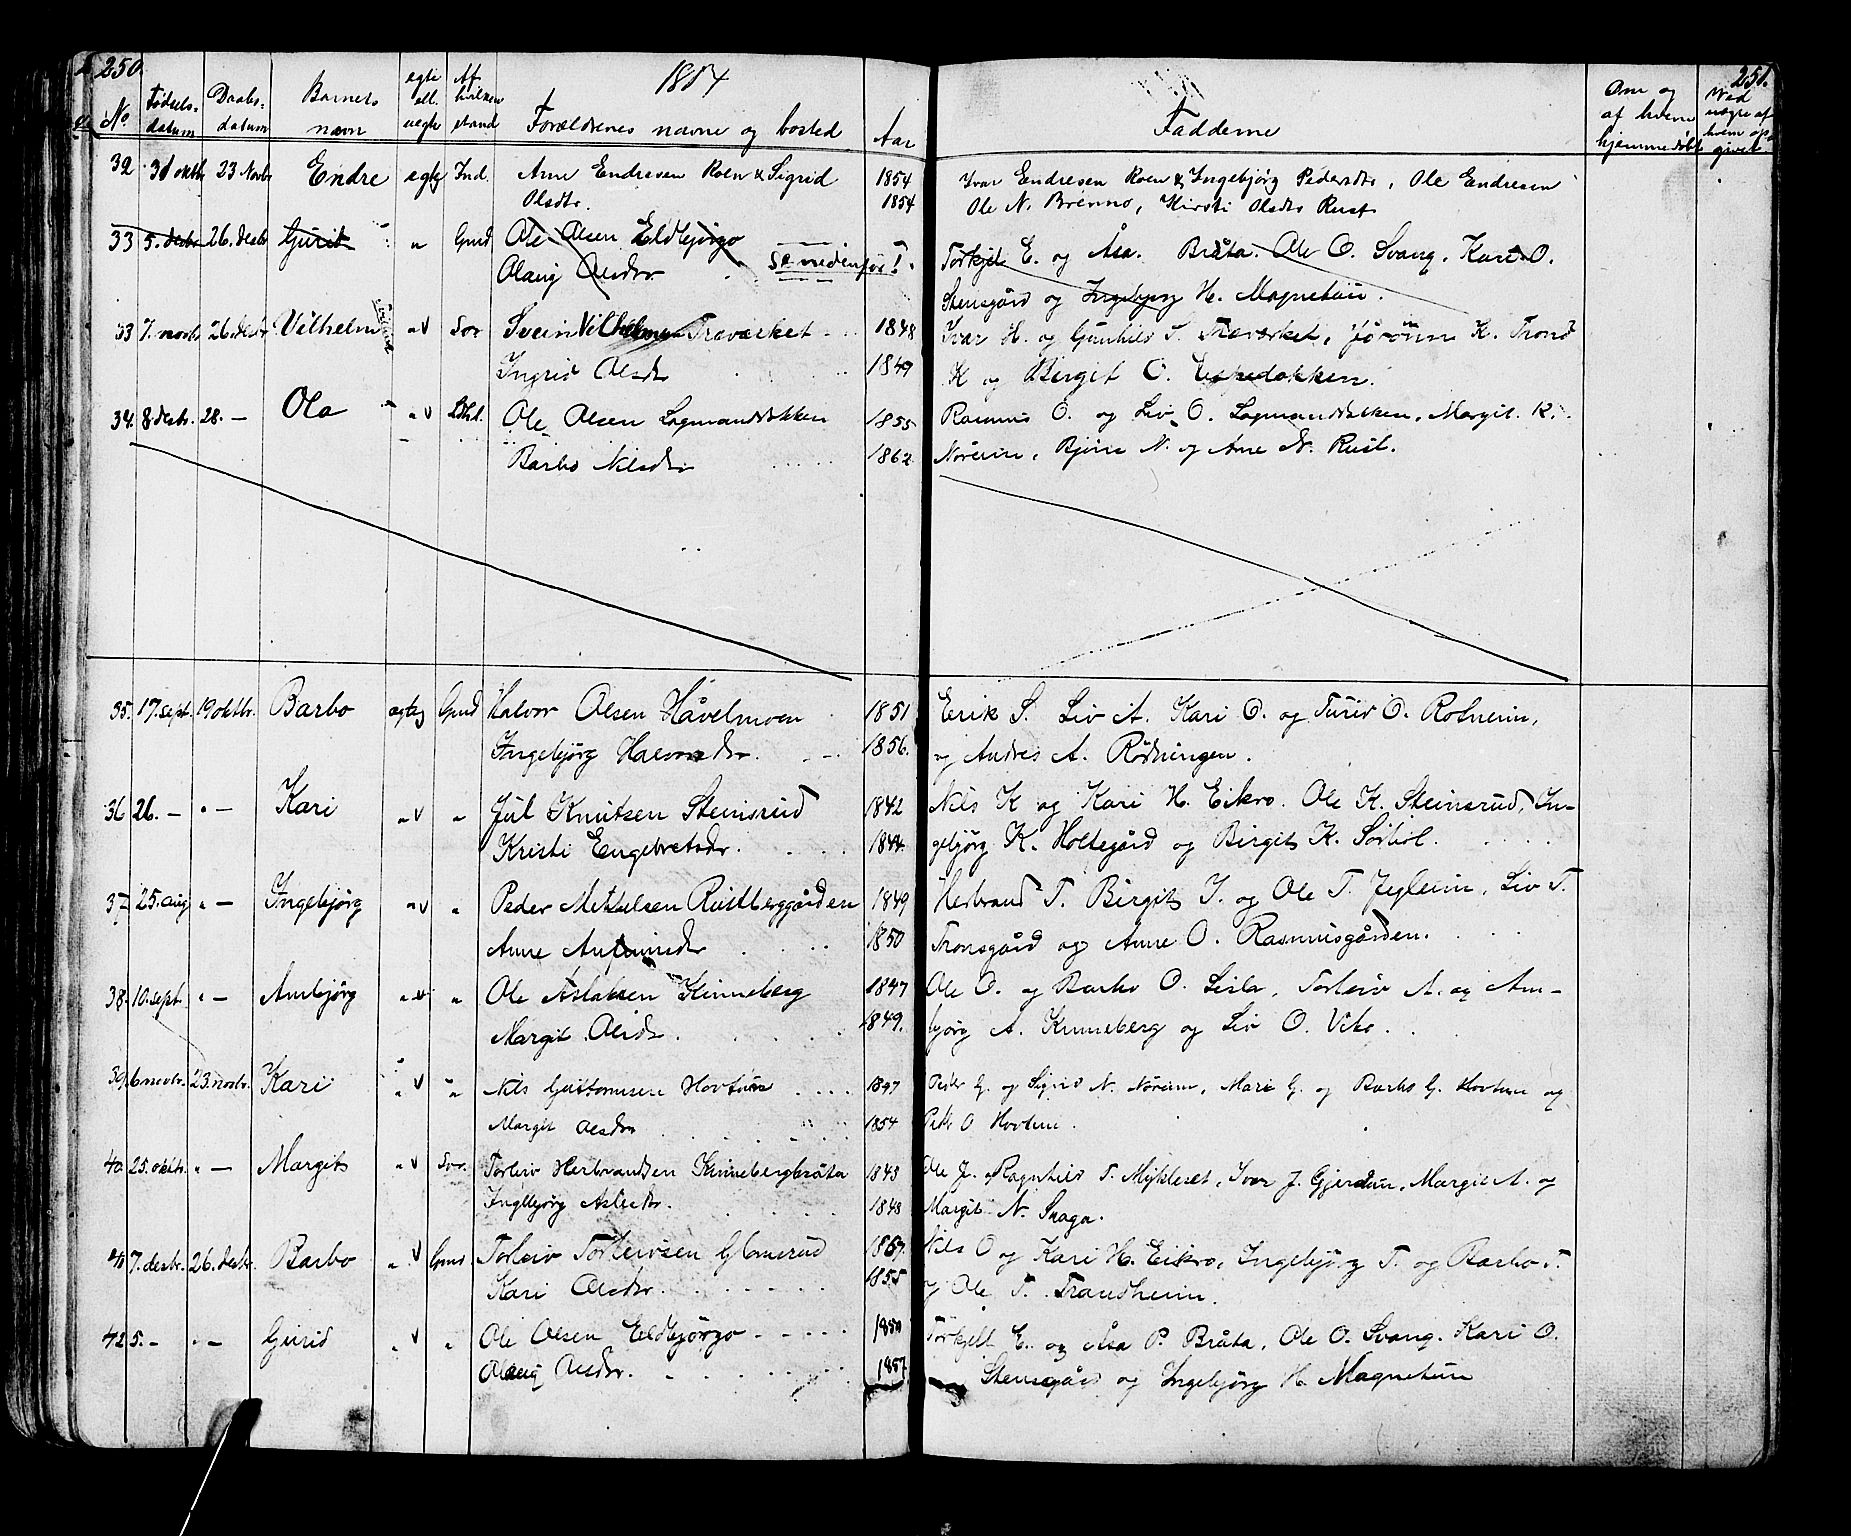 250.
1884
251.
No Fødsels-datum Daabs-datum Barnets navn egte ell. uegte Af hvilken stand Forældrenes navne og bosted Aar Fadderne Om og af hvem hjemmedøbt
32 31 oktbr 23 Novbr Endre egtg Ind. Arne Endresen Roen & Sigrid 1854 Ivar Endresen Roen & Ingebjørg Pedersdtr, Ole Endresen
Olsdtr. 1854 Ole N. Brenno, Kirsti Olsdtr Rust
33 5. desbr 26. desbr Gurid " Gmd Ole Olsen Eldbjørgo Torkjel E. og Åsa. Bråta. Ole O. Svang. Kari O.
Olaug Olsdtr Se nedenfor! Stensgård og Ingebjørg H. Magnetun.
33 7. novbr 26. desbr Vilhelm " v Sor Svein Vilhelmsen Traværket 1848 Ivar H. og Gunhild S. Traværket, Jørønn K. Trond
Ingrid Olsdr 1849 K og Birgit O. Espedokken.
34. 8 desbr. 28. — Ola " v Ole Olsen Lagmandsbakken 1855 Rasmus O. og Liv O. Lagmandsbakken, Margit K.
Barbo Nilsdr 1862 Nøreim, Bjørn N. og Arne N. Rust.
35. 17. sept. 19 oktbr. Barbo egteg Gmd Halvor Olsen Håvelmoen 1851 Erik S. Liv A. Kari O. og Turid O. Rotneim,
Ingebjørg Halvorsdr. 1856. og Andres A. Rødningen.
36 26. — " — Kari " v " Jul Knutsen Steinsrud 1842 Nils K og Kari H. Eikro. Ole K. Steinsrud, In-
Kristi Engebretsdr. 1844. gebjørg K. Holtegård og Birgit K. Sørbøl.
37 25. aug " — Ingebjørg " v " Peder Mikkelsen Rustberggården 1849 Herbrand T. Birgit I. og Ole T. Jegleim, Liv T.
Anne Anfinnsdr 1850 Tronsgård og Anne O. Rasmusgården.
38. 10. sept. " — Arnbjørg " v " Ole Aslaksen Kinneberg 1847 Ole O. og Barbo O. Lisla, Torleiv A. og Arn-
Margit Olsdr. 1849. bjørg A. Kinneberg og Liv O. Viko.
39. 6 novbr. 23. novbr. Kari " v " Nils Guttormsen Hovtun 1847 Peder G. og Sigrid N. Nøreim, Mari G. og Barbo G. Hovtun og
Margit Olsdr 1854 O Hovtun.
40. 25. oktbr. " — Margit " v Sor. Torleiv Herbrandsen Kinnebergbråta 1843 Ole J. Ragnhild T. Mykleset, Ivar J. Gjerdun, Margit A. og
Ingebjørg Asledr. 1848 Margit N. Skaga.
41 7. desbr. 26. desbr. Barbo " v Gmd. Torleiv Torleivsen Glomsrud 1857. Nils O og Kari H. Eikro, Ingebjørg T. og Barbo T.
Kari Olsdr. 1855 og Ole T. Trandheim.
42 5. — " — Gurid " v " Ole Olsen Eldbjørgo 1850 Torkjell E. og Åsa P. Bråta, Ole O. Svang. Kari O.
Olaug Olsdr. 1857 Stensgård og Ingebjørg H. Magnetun